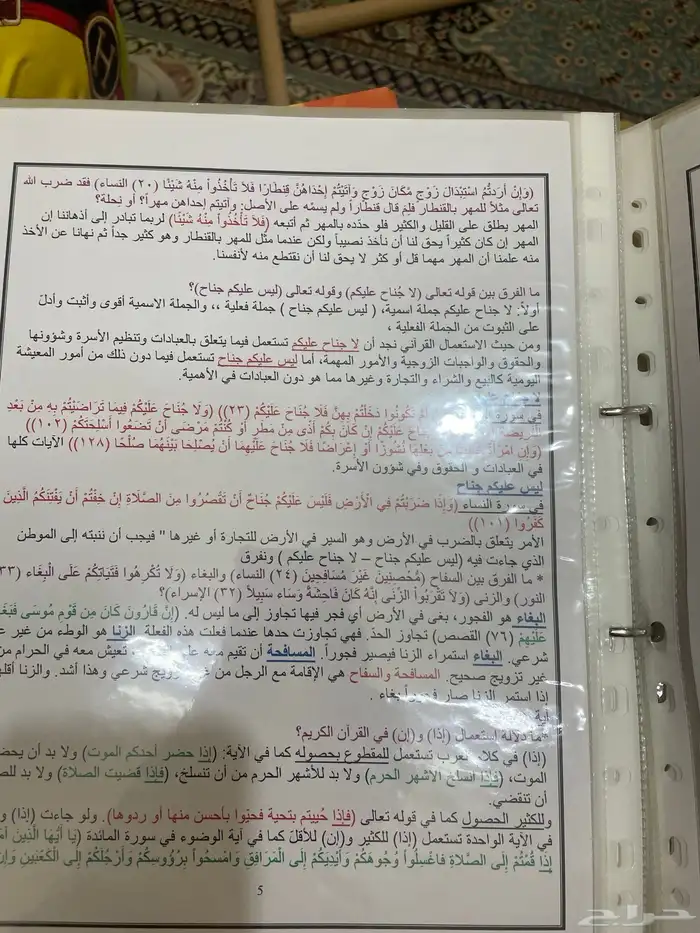 (وَإِنْ أَرَدتُّمُ اسْتِبْدَالَ زَوْجٍ مَّكَانَ زَوْجٍ وَآتَيْتُمْ إِحْدَاهُنَّ قِنطَارًا فَلاَ تَأْخُذُواْ مِنْهُ شَيْئًا (٢٠) النساء) فقد ضرب الله
تعالى مثلاً للمهر بالقنطار فلِمَ قال قنطاراً ولم يسمّه على الأصل: وآتيتم إحداهن مهراً؟ أو نِحلة؟
المهر يطلق على القليل والكثير فلو حدّده بالمهر ثم أتبعه (فَلاَ تَأْخُذُواْ مِنْهُ شَيْئًا) لربما تبادر إلى أذهاننا إن
المهر إن كان كثيراً يحق لنا أن نأخذ نصيباً ولكن عندما مثل للمهر بالقنطار وهو كثير جداً ثم نهانا عن الأخذ
منه علمنا أن المهر مهما قل أو كثر لا يحق لنا أن نقتطع منه لأنفسنا.
ما الفرق بين قوله تعالى (لا جُناح عليكم) وقوله تعالى (ليس عليكم جناح)؟
أولاً: لا جناح عليكم جملة اسمية، ( ليس عليكم جناح ) جملة فعلية ،، والجملة الاسمية أقوى وأثبت وأدلّ
على الثبوت من الجملة الفعلية ،
ومن حيث الاستعمال القرآني نجد أن لا جناح عليكم تستعمل فيما يتعلق بالعبادات وتنظيم الأسرة وشؤونها
والحقوق والواجبات الزوجية والأمور المهمة، أما ليس عليكم جناح تستعمل فيما دون ذلك من أمور المعيشة
اليومية كالبيع والشراء والتجارة وغيرها مما هو دون العبادات في الأهمية.
في سورة تَكُونُواْ دَخَلْتُم بِهِنَّ فَلاَ جُنَاحَ عَلَيْكُمْ (٢٣)) (وَلاَ جُنَاحَ عَلَيْكُمْ فِيمَا تَرَاضَيْتُم بِهِ مِن بَعْدِ
عَلَيْكُمْ إِن كَانَ بِكُمْ أَذًى مِّن مَّطَرٍ أَوْ كُنتُم مَّرْضَى أَن تَضَعُواْ أَسْلِحَتَكُمْ (١٠٢))
(وَإِنِ امْرَأَةٌ مِن بَعْلِهَا نُشُوزًا أَوْ إِعْرَاضًا فَلاَ جُنَاحَ عَلَيْهِمَا أَن يُصْلِحَا بَيْنَهُمَا صُلْحًا (١٢٨)) الآيات كلها
في العبادات و الحقوق وفي شؤون الأسرة.
ليس عليكم جناح
في سورة النساء (وَإِذَا ضَرَبْتُمْ فِي الأَرْضِ فَلَيْسَ عَلَيْكُمْ جُنَاحٌ أَن تَقْصُرُواْ مِنَ الصَّلاَةِ إِنْ خِفْتُمْ أَن يَفْتِنَكُمُ الَّذِينَ
كَفَرُوا (١٠١))
الأمر يتعلق بالضرب في الأرض وهو السير في الأرض للتجارة أو غيرها " فيجب أن ننتبه إلى الموطن
الذي جاءت فيه (ليس عليكم جناح – لا جناح عليكم ) ونفرق
* ما الفرق بين السفاح (مُحْصِنِينَ غَيْرَ مُسَافِحِينَ (٢٤) النساء) والبغاء (وَلَا تُكْرِهُوا فَتَيَاتِكُمْ عَلَى الْبِغَاء (٣٣
النور) والزنى (وَلاَ تَقْرَبُواْ الزِّنَى إِنَّهُ كَانَ فَاحِشَةً وَسَاء سَبِيلاً (٣٢) الإسراء)؟
البغاء هو الفجور، بغى في الأرض أي فجر فيها تجاوز إلى ما ليس له. (إِنَّ قَارُونَ كَانَ مِن قَوْمِ مُوسَى فَبَغَى
عَلَيْهِمْ (٧٦) القصص) تجاوز الحدّ. فهي تجاوزت حدها عندما فعلت هذه الفعلة. الزنا هو الوطء من غير
شرعي. البغاء استمراء الزنا فيصير فجوراً. المسافحة أن تقيم معه تعيش معه في الحرام من
غير تزويج صحيح. المسافحة والسفاح هي الإقامة مع الرجل من تزويج شرعي وهذا أشد. والزنا
إذا استمر الزنا صار فجوراً بغاء .
آية
*ما دلالة استعمال (إذا) و(إن) في القرآن الكريم؟
(إذا) في كلام العرب تستعمل للمقطوع بحصوله كما في الآية: (إذا حضر أحدكم الموت) ولا بد أن
الموت، (فإذا انسلخ الاشهر الحرم) ولا بد للأشهر الحرم من أن تنسلخ، (فإذا قضيت الصلاة) ولا بد
أن تنقضي.
وللكثير الحصول كما في قوله تعالى (فإذا حُييتم بتحية فحيّوا بأحسن منها أو ردوها). ولو جاءت (إذا)
في الآية الواحدة تستعمل (إذا) للكثير و(إن) للأقلّ كما في آية الوضوء في سورة المائدة (يَا أَيُّهَا الَّذِينَ
إِذَا قُمْتُمْ إِلَى الصَّلاةِ فاغْسِلُواْ وُجُوهَكُمْ وَأَيْدِيَكُمْ إِلَى الْمَرَافِقِ وَامْسَحُواْ بِرُؤُوسِكُمْ وَأَرْجُلَكُمْ إِلَى الْكَعْبَينِ وَإِن
5
حراج